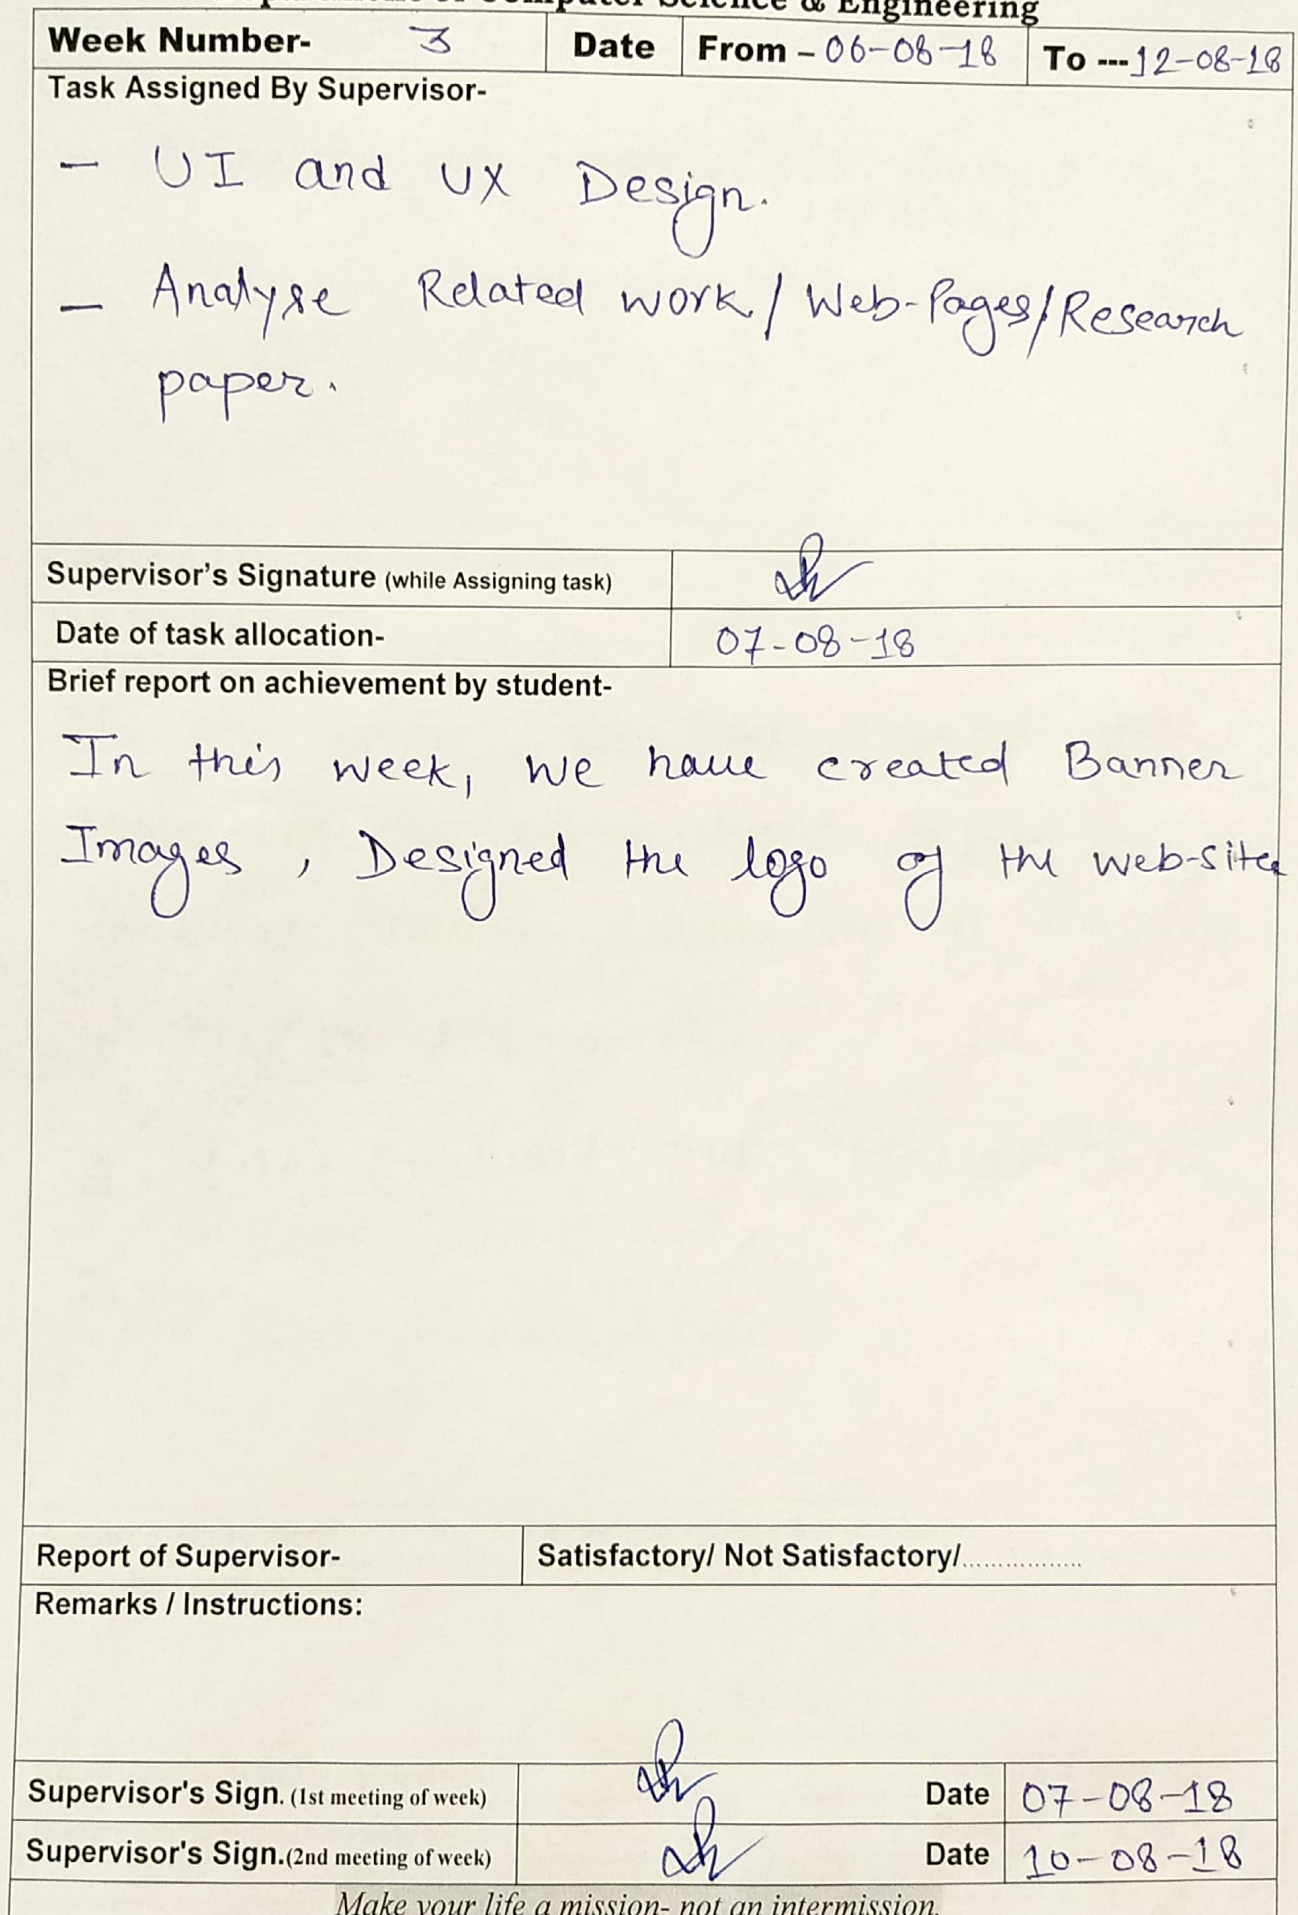 Computer Science & Engineering
Week Number- 3 Date From - 06-08-18 To ---12-08-18
Task Assigned By Supervisor-
- UI and UX Design.
- Analyse Related work/Web-Pages/Research
paper.
Supervisor's Signature (while Assigning task)
Date of task allocation- 07-08-18
Brief report on achievement by student-
In this week, we have created Banner
Images, Designed the logo of the web-site
Report of Supervisor- Satisfactory/ Not Satisfactory/.................
Remarks / Instructions:
Supervisor's Sign. (1st meeting of week) Date 07-08-18
Supervisor's Sign.(2nd meeting of week) Date 10-08-18
Make your life a mission- not an intermission.